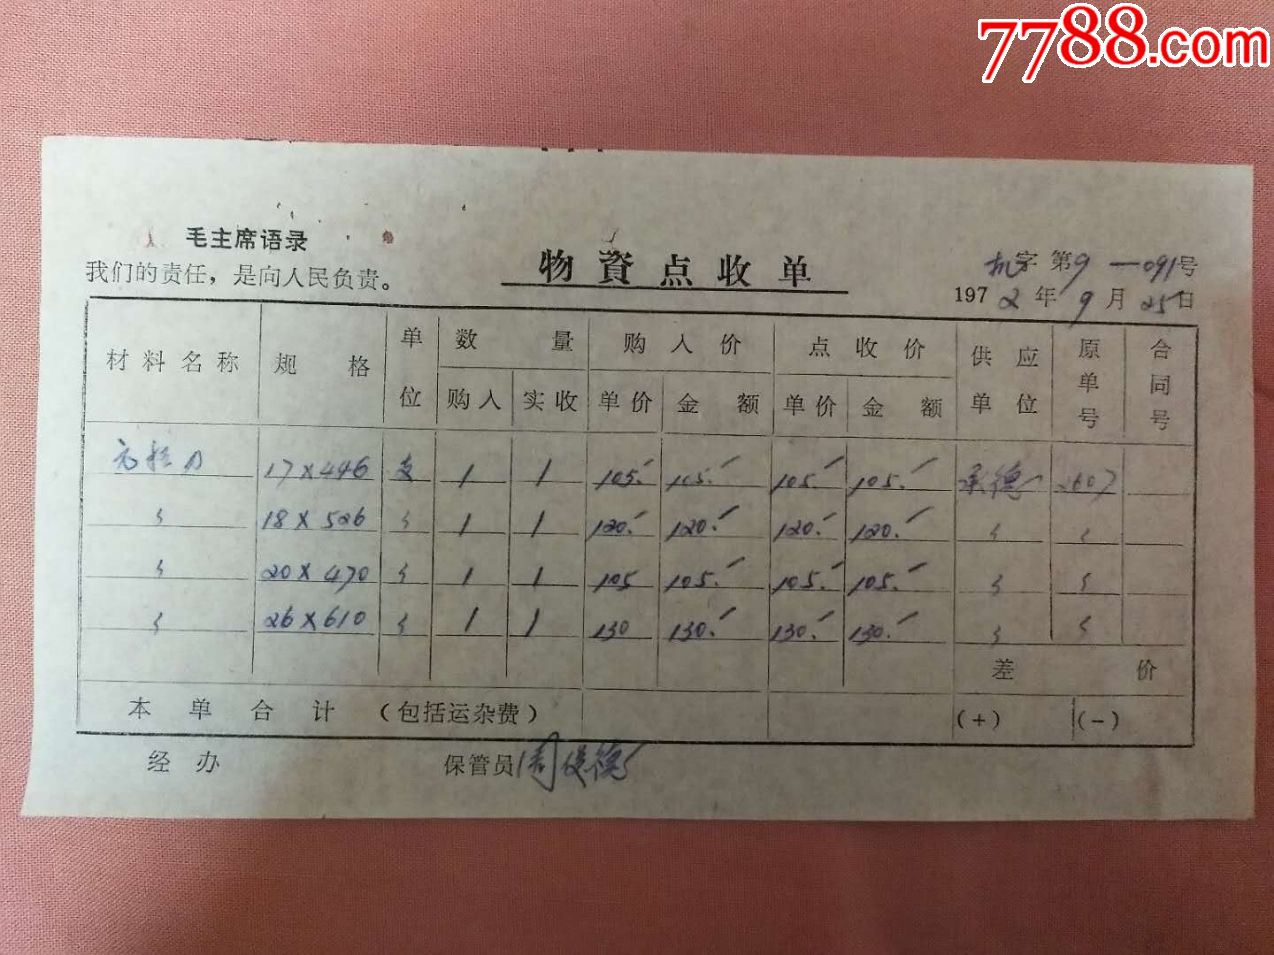 7788.com
毛主席语录
我们的责任，是向人民负责。
物資点收单
机字第9—091号
1972年9月25日
材料名称 规格 单位 数量 购入价 点收价 供应单位 原单号 合同号
购入 实收 单价 金额 单价 金额
17×446 支 1 1 105.- 105.- 105.- 105.- 承德 2607
〃 18×526 〃 1 1 120.- 120.- 120.- 120.- 〃 〃
〃 20×470 〃 1 1 105 105.- 105.- 105.- 〃 〃
〃 26×610 〃 1 1 130 130.- 130.- 130.- 〃 〃
差价
本单合计（包括运杂费） (+) (-)
经办 保管员 周俊德